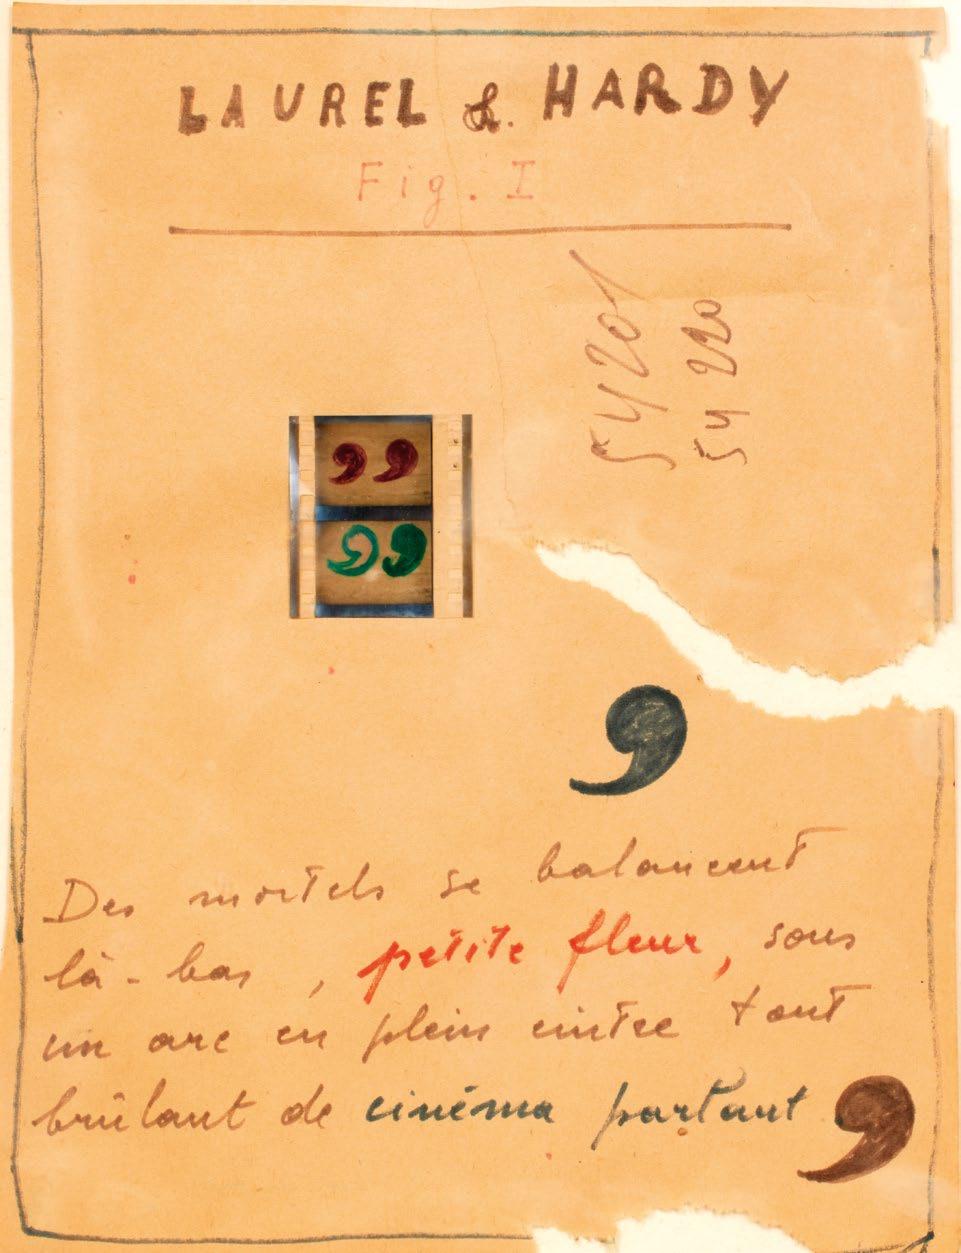 LAUREL & HARDY
Fig. I
54 201
54 220
Des mortels se balancent
là-bas, petite fleur, sous
un arc en plein cintre tout
brûlant de cinéma partant